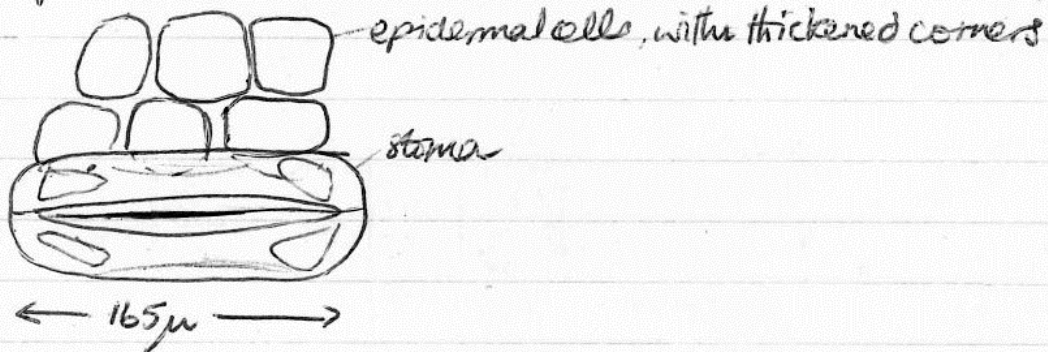 epidermal cells, with thickened corners
stoma
165μ